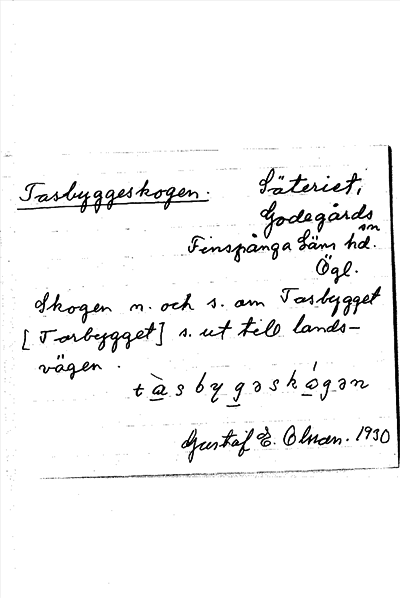 Tasbyggeskogen. Säteriet,
Godegårds sn
Finspånga läns hd.
Ögl.
Skogen n. och s. om Tasbygget
[Torbygget] s. ut till lands-
vägen.
tὰsbygəskɷ́gən
Gustaf E. Olman. 1930